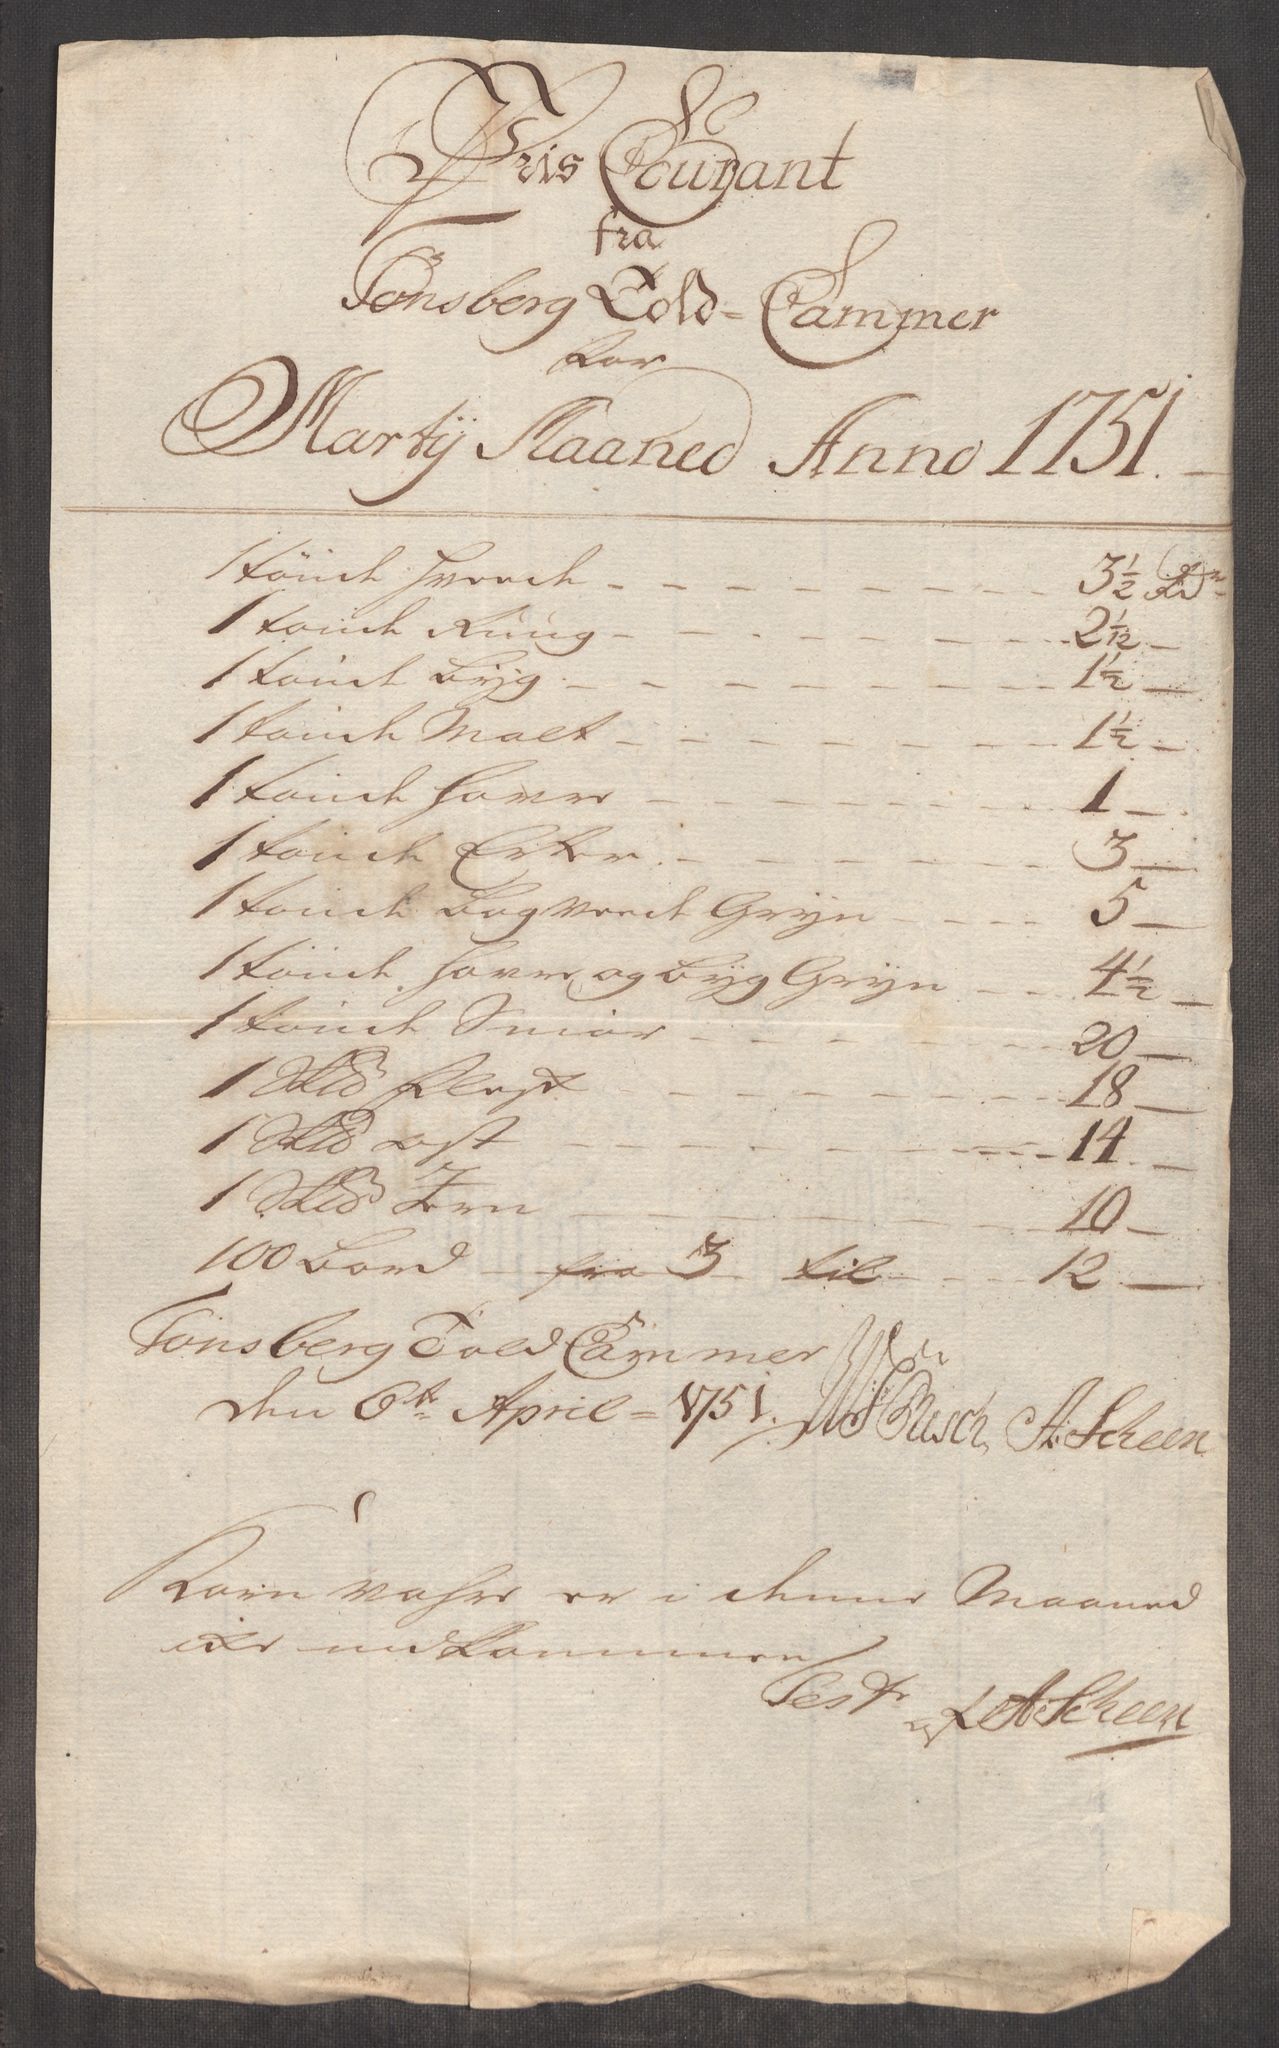 Pris Courant
fra
Tönsberg Told-Cammer
for
Martij Maaned Anno 1751.
1 tönde Hvede - - - 3½ Rdr
1 tönde Rüug - - - 2 1/12 -
1 tönde Byg - - - 1½ -
1 tönde Malt - - - 1½ -
1 tönde Havre - - - 1 -
1 tönde Erter - - - 3 -
1 tönde Boghvede Gryn - - - 5 -
1 tönde Havre og Byg Gryn - - - 4½ -
1 tönde Smör - - - 20 -
1 Skd Flesk - - - 18 -
1 Skd Ost - - - 14 -
1 Skd Jern - - - 10 -
100 Bord fra 3 til - - - 12 -
Tonsberg Told Cammer
den 6te April = 1751. Büsch A: Scheen
Korn vahre er i denne Maaned
icke indkommen
Test A: Scheen